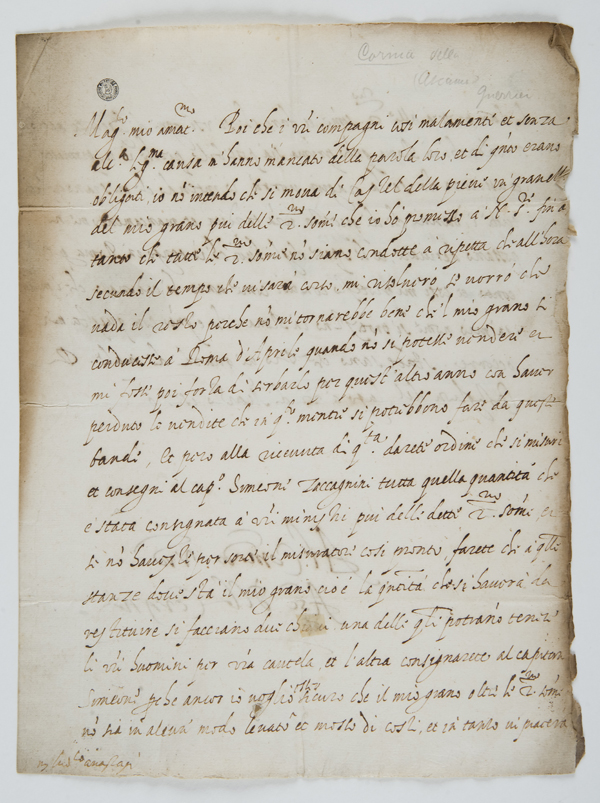 Cornia della
(Ascanio
Mag.co mio amat.mo Poi che i vri compagni cosi malamente et senza
alc.a causa m'hanno mancato della parola loro, et di q'nto erano
obligati, io nō intendo che si mova di Castel della pieve un granello
del mio grano piu delle 2 m. some che io hō promisso a N. S.re fin a
tanto che tutte le 2 m. some nō siano condotte a ripetta che all'hora
secundo il tempo che vi sarà corso, mi risolverò, se vorrò che
vada il resto perche nō mi tornarebbe bene che 'l mio grano si
conducesse a Roma d'Aprile quando nō si potesse vendere et
mi fosse poi forza di serbarlo per quest'altro anno con haver
perduto le vendite che in q.o mentre si potrebbono fare da queste
bande, Et però alla ricevuta di q.ta darete ordine che si misuri
et consegni al cap.o Simeone Zaccagnini tutta quella quantità che
è stata consignata a vri ministri piu delle dette 2 m. some, et
se nō haveste per sorte il misuratore cosi pronto, farete che a q'lle
stanze dove sta il mio grano cioè la q'ntità che si haverà da
restituire si facciano due chiavi una delle q'li potrano tenere
li vri huomini per via cautela et l'altra consignarete al capitan
Simeone pche ancor io voglio esser sicuro che il mio grano oltre le 2 m. some
nō sia in alcun modo levato et mosso di costi, et in tanto vi piacerà